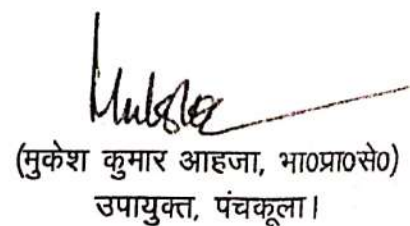 (मुकेश कुमार आहजा, भा०प्रा०से०)
उपायुक्त, पंचकूला।